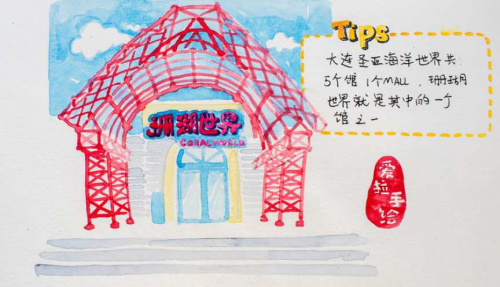 Tips
大连圣亚海洋世界共
5个馆 1个MALL，珊瑚
世界就是其中的一个
馆之一
珊瑚世界
CORALWORLD
爱拉手绘